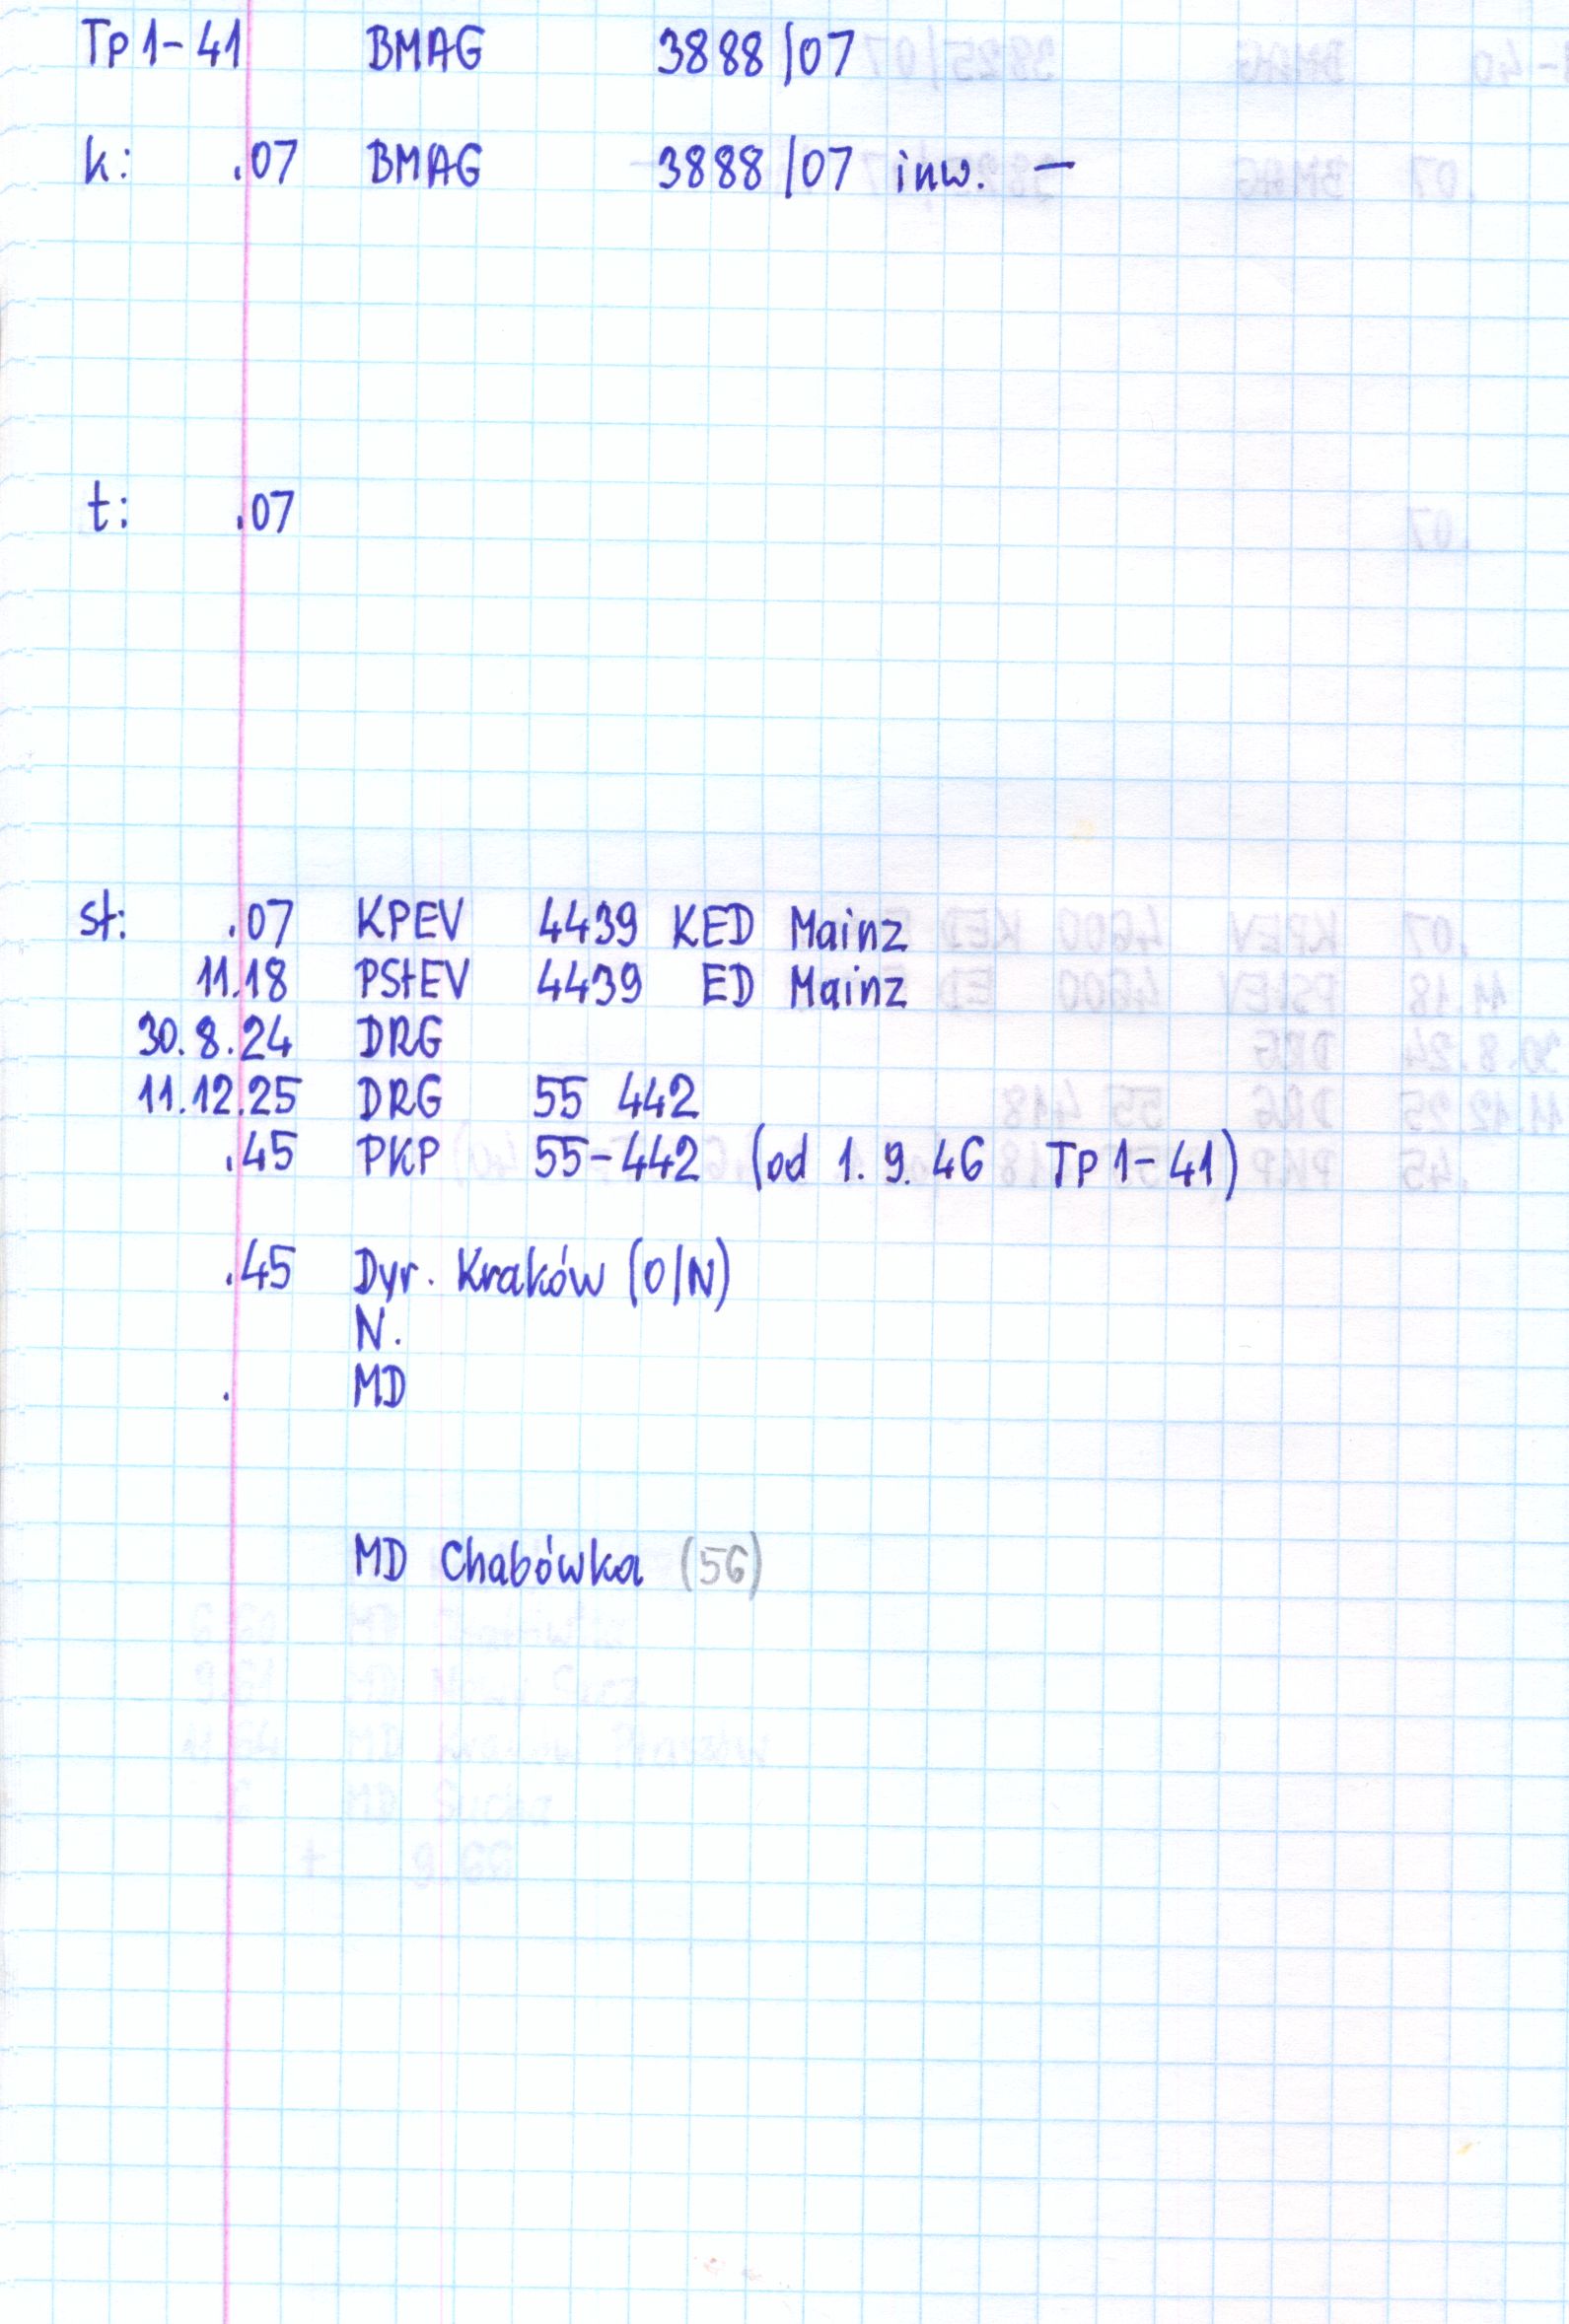 Tp 1-41 BMAG 3888/07
k: .07 BMAG 3888/07 inw. —
t: .07
st: .07 KPEV 4439 KED Mainz
11.18 PStEV 4439 ED Mainz
30.8.24 DRG
11.12.25 DRG 55 442
.45 PKP 55-442 (od 1.9.46 Tp 1-41)
.45 Dyr. Kraków (O/N)
N.
. MD
MD Chabówka (56)